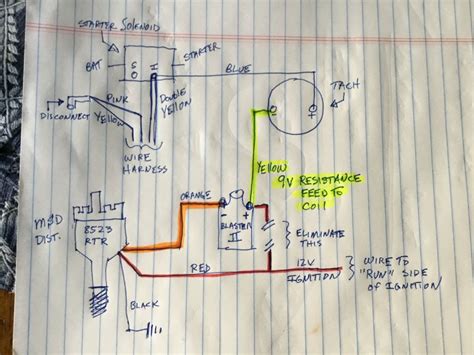 STARTER SOLENOID
STARTER
BAT
S
I
BLUE
TACH
PINK
YELLOW
DISCONNECT
DOUBLE
YELLOW
WIRE
HARNESS
YELLOW
9V RESISTANCE
FEED TO
COIL
ORANGE
MSD
DIST.
8523
RTR
BLASTER
II
ELIMINATE
THIS
RED
12V
IGNITION
WIRE TO
"RUN" SIDE
OF IGNITION
BLACK